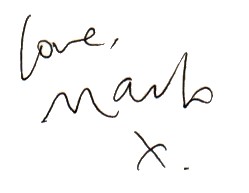 love,
Mark
x.